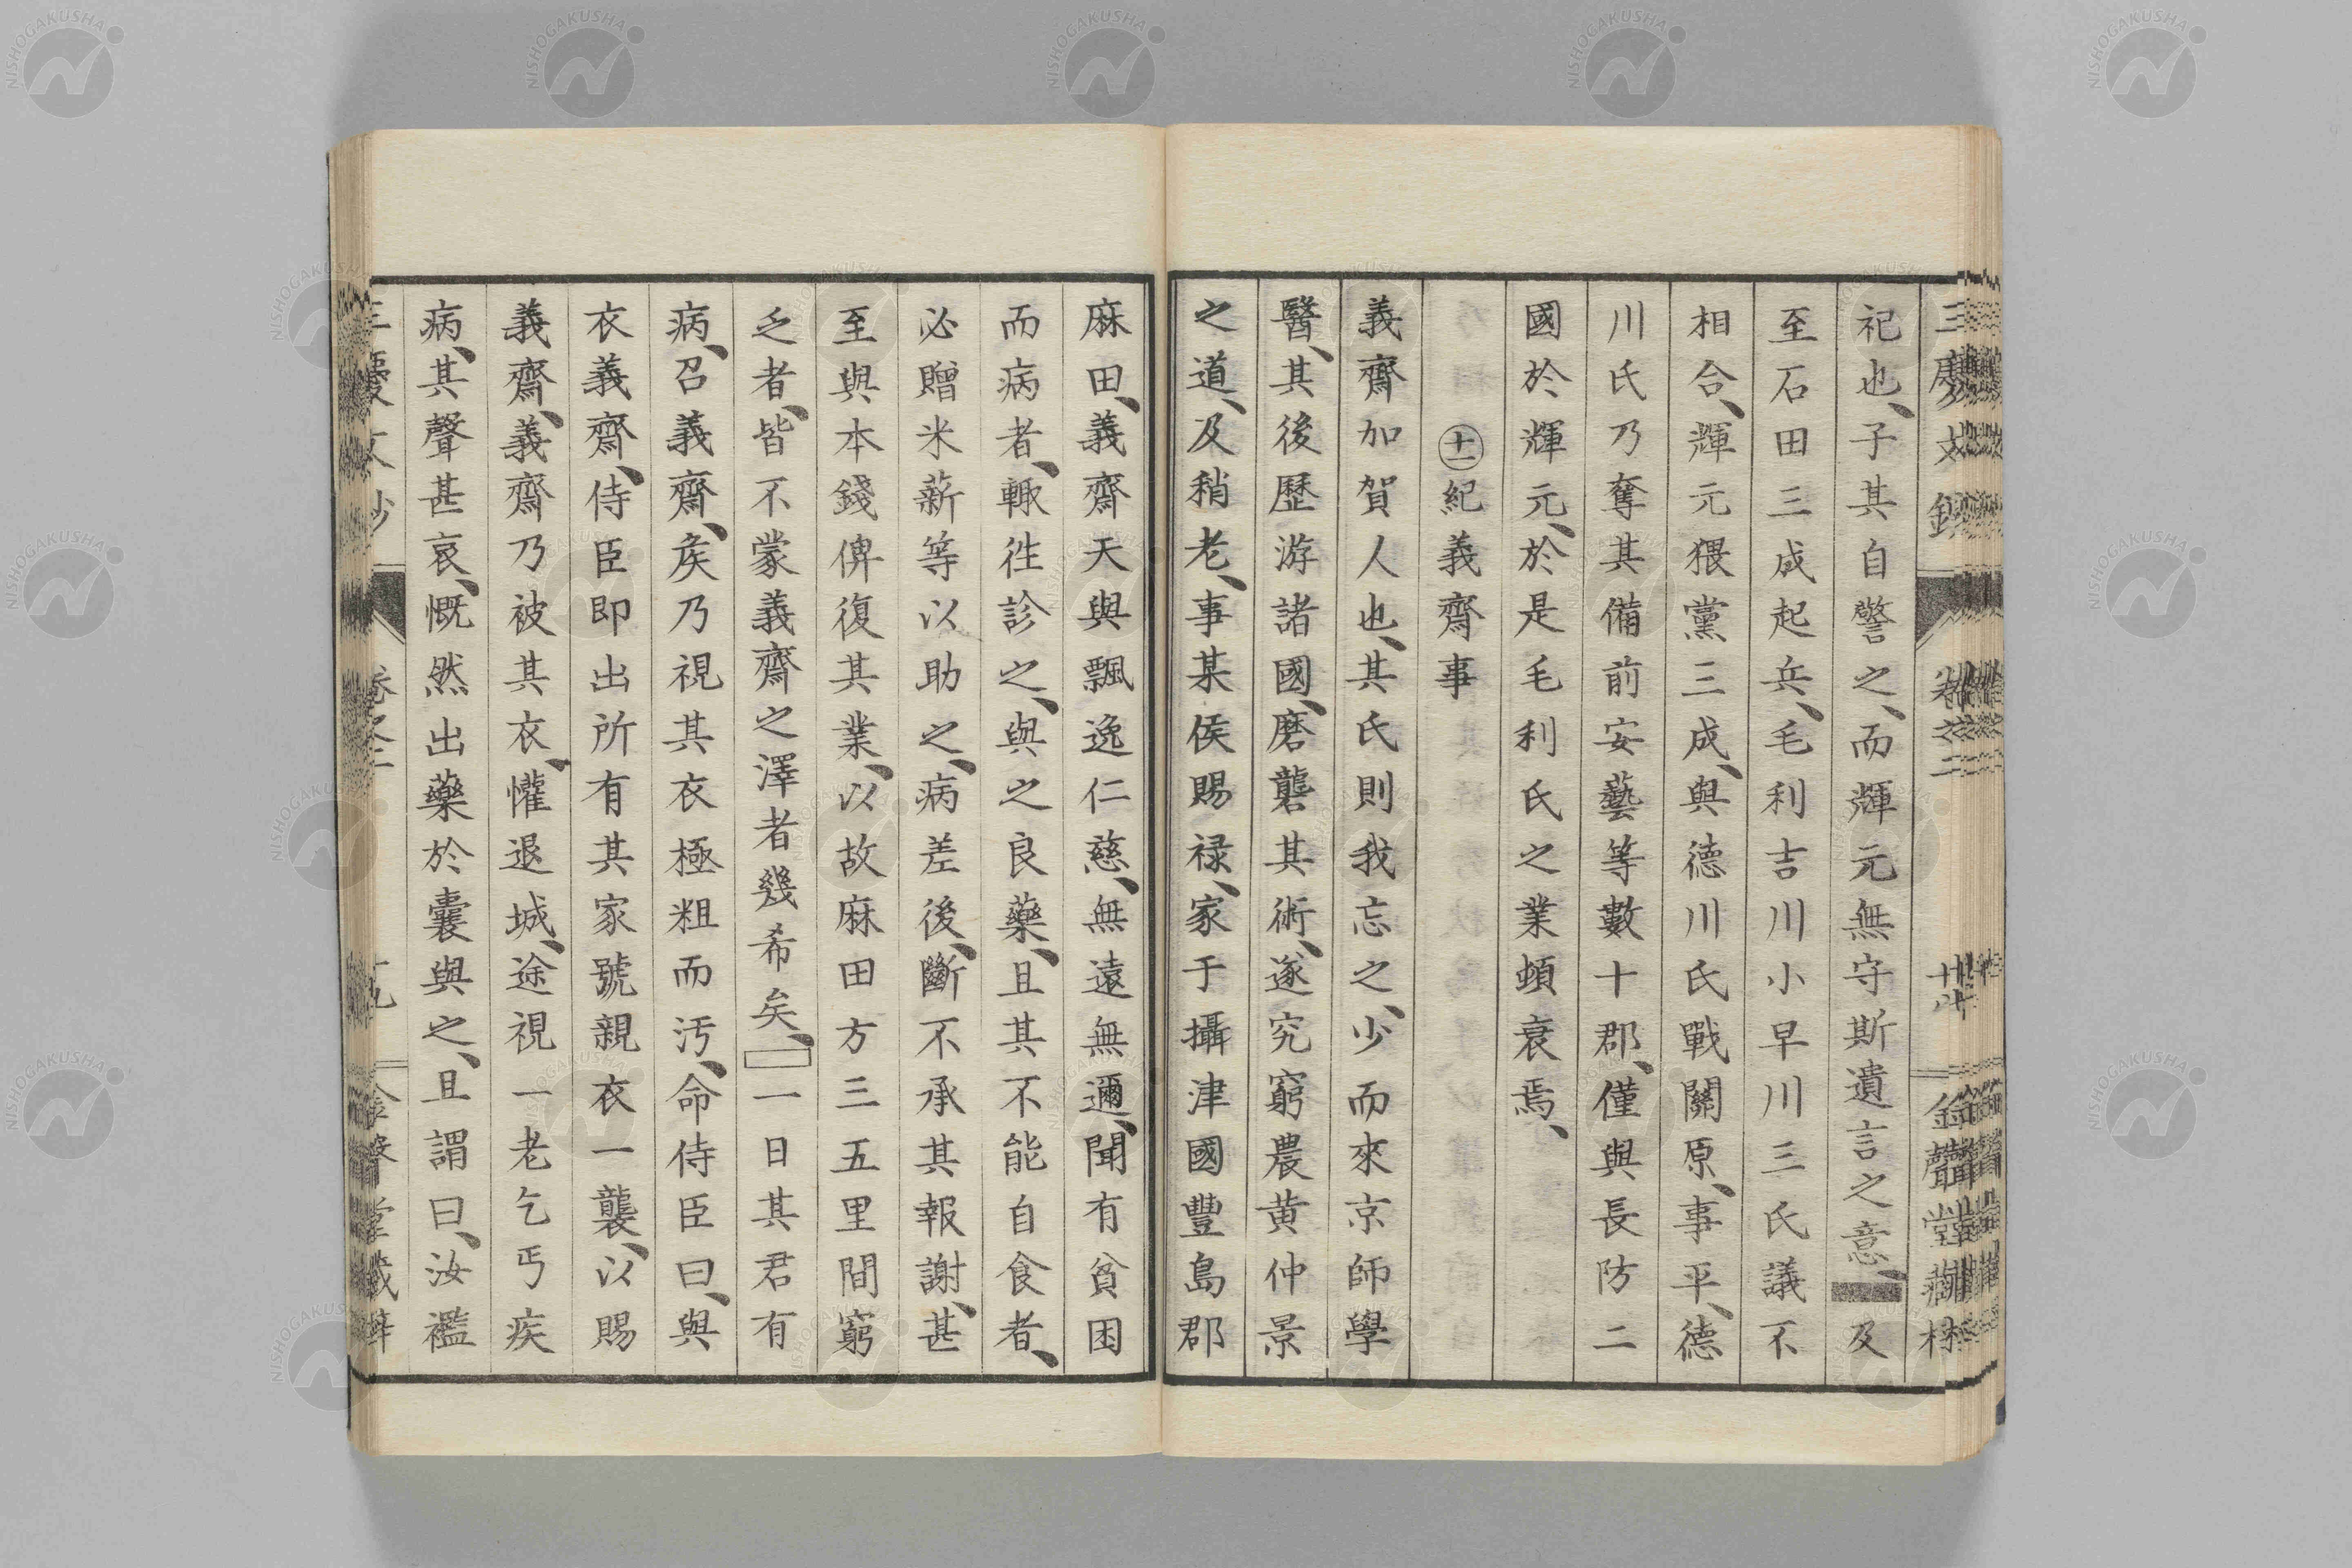 祀也、子其自警之、而輝元無守斯遺言之意、及
至石田三成起兵、毛利吉川小早川三氏議不
相合、輝元猥黨三成、與德川氏戰關原、事平、德
川氏乃奪其備前安藝等數十郡、僅與長防二
國於輝元、於是毛利氏之業頓衰焉、
㊉紀義齋事
義齋加賀人也、其氏則我忘之、少而來京師學
醫、其後歷游諸國、磨礱其術、遂究窮農黃仲景
之道、及稍老、事某侯賜祿、家于攝津國豐島郡
麻田、義齋天與飄逸仁慈、無遠無邇、聞有貧困
而病者、輙徃診之、與之良藥、且其不能自食者、
必贈米薪等以助之、病差後、斷不承其報謝、甚
至與本錢俾復其業、以故麻田方三五里間窮
乏者、皆不蒙義齋之澤者幾希矣、一日其君有
病、召義齋、矦乃視其衣極粗而汚、命侍臣曰、與
衣義齋、侍臣即出所有其家號親衣一襲、以賜
義齋、義齋乃被其衣、懽退城、途視一老乞丐疾
病、其聲甚哀、慨然出藥於囊與之、且謂曰、汝襤